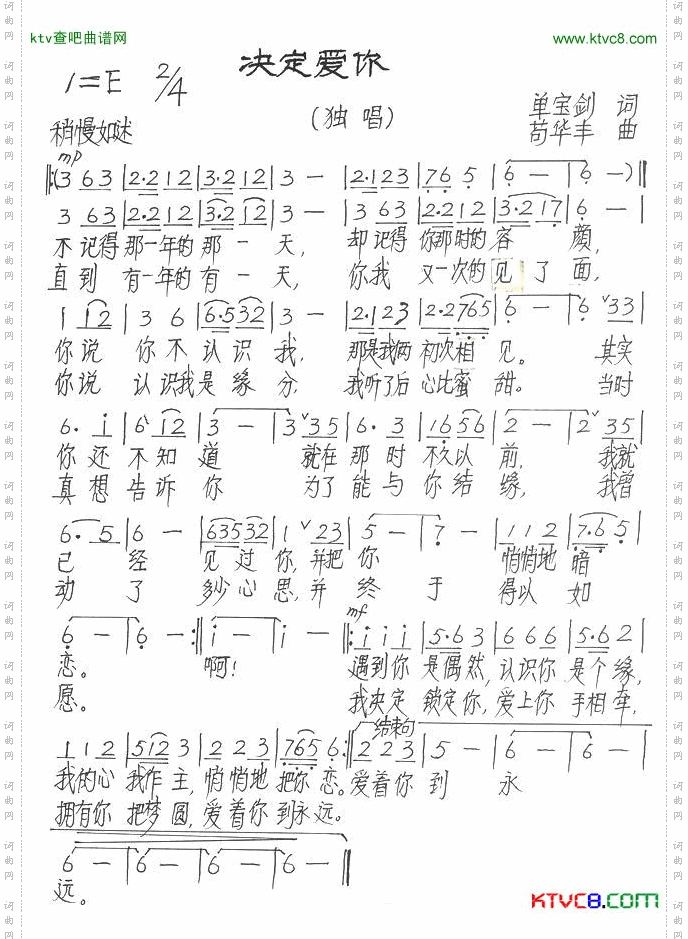 ktv查吧曲谱网
www.ktvc8.com
决定爱你
1=E 2/4
(独唱)
单宝剑 词
苟华丰 曲
稍慢如述
mp
‖:(3 63 |2·2 12 |3·2 12 |3 — |2·1 23 |76 5 |6 — |6 —)‖
3 63 |2·2 12 |3·2 12 |3 — |3 63 |2·2 12 |3·2 17 |6 — |
不记得 那一年的 那 一 天, 却记得 你那时的 容 颜,
直到 有一年的 有 一 天, 你我 又一次的 见 了 面,
1 12 |3 6 |6·5 32 |3 — |2·1 23 |2·2 765 |6 — |6 ˅33 |
你说 你 不 认 识 我, 那是我俩 初次相 见。 其实
你说 认识我是 缘 分, 我听了后 心比蜜 甜。 当时
6· i |6 i2 |3 — |3 ˅35 |6· 3 |16 56 |2 — |2 ˅35 |
你 还 不知 道 就在 那 时 不久以 前, 我就
真 想 告诉 你 为了 能 与 你结 缘, 我曾
6· 5 |6 — |635 32 |1 ˅23 |5 — |7 — |1 1 2 |7·6 5 |
已 经 见 过 你,并把 你 悄悄地 暗
动 了 多少心 思,并 终 于 得以 如
mf
6 — |6 — :‖i — |i — ‖: i i i |5·6 3 |6 6 6 |5·6 2 |
恋。 啊! 遇到你 是偶然,认识你 是个缘,
愿。 我决定 锁定你,爱上你 手相牵,
结束句
1 1 2 |512 3 |2 2 3 |765 6 :‖2 2 3 |5 — |6 — |6 — |
我的心 我作主,悄悄地 把你恋。爱着你 到 永
拥有你 把梦圆,爱着你 到永远。
6 — |6 — |6 — |6 — ‖
远。
KTVC8.COM
词曲网